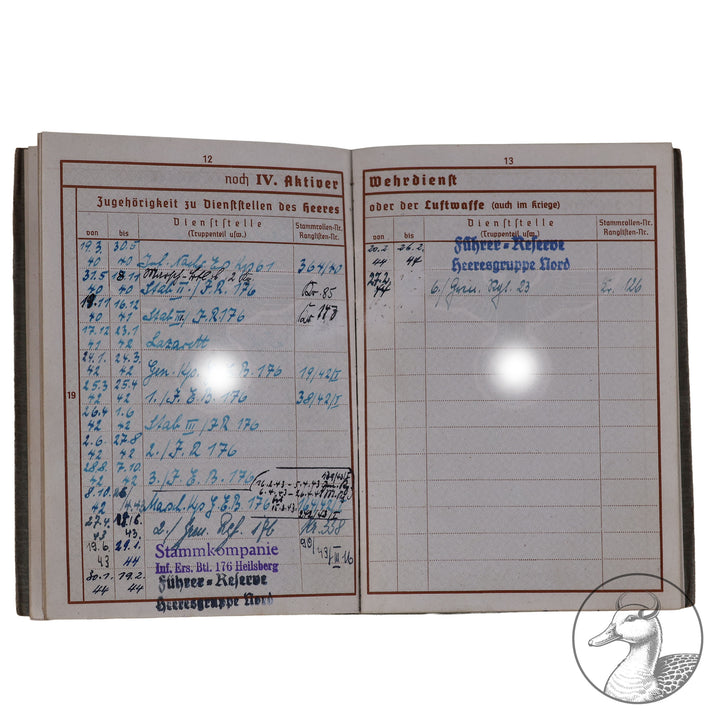 12
noch IV. Aktiver
Zugehörigkeit zu Dienststellen des Heeres
von bis Dienststelle (Truppenteil usw.) Stammrollen-Nr. Ranglisten-Nr.
19.3. 40 30.5. 40 Inf. Nachr. Kp 61 364/40
31.5 40 40 Marsch-Btl.
Stab II./J.R. 176 Kr. 85
40 16.12 41 Stab III/J.R 176
17.12 41 23.1 42 Lazarett
24.1. 42 24.3. 42 Gen. Kp. E. B. 176 19/42/I
25.3 42 25.4 42 1./J. E. B. 176 38/42/I
19
26.4 42 1.6 42 Stab III/JR 176
2.6. 42 27.8 42 2./J.R 176
28.8. 42 7.10. 42 3./J. E. B. 176
16.2.43 – 5.4.43
8.10. 42 Marsch. Kp J. E. B. 176
27.4. 43 43. 2./Gren. Rgt. 176 Nr. 338
19.6. 43 29.1. 44 Stammkompanie
Inf. Ers. Btl. 176 Heilsberg
30.1. 44 19.2. 44 Führer-Reserve
Heeresgruppe Nord
13
Wehrdienst
oder der Luftwaffe (auch im Kriege)
von bis Dienststelle (Truppenteil usw.) Stammrollen-Nr. Ranglisten-Nr.
20.2. 44 26.2. 44 Führer-Reserve
Heeresgruppe Nord
27.2. 44 6./Gren. Rgt. 23 Kr. 126